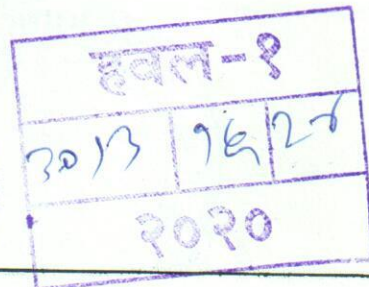 हवल-१
३०१३ १६
२०२०